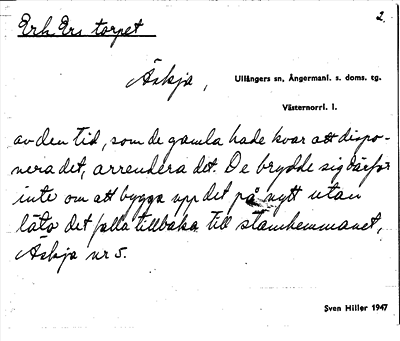 Erk Ers torpet
2.
Äskja,
Ullångers sn, Ångermanl. s. doms. tg.
Västernorrl. l.
av den tid, som de gamla hade kvar att dispo-
nera det, arrendera det. De brydde sig därför
inte om att bygga upp det på nytt utan
läto det falla tillbaka till stamhemmanet,
Äskja nr 5.
Sven Hiller 1947